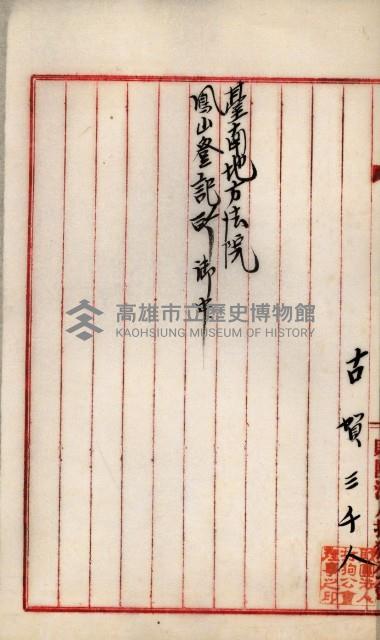 古賀三千人
臺南地方法院
鳳山登記所御中
高雄市立歷史博物館
KAOHSIUNG MUSEUM OF HISTORY